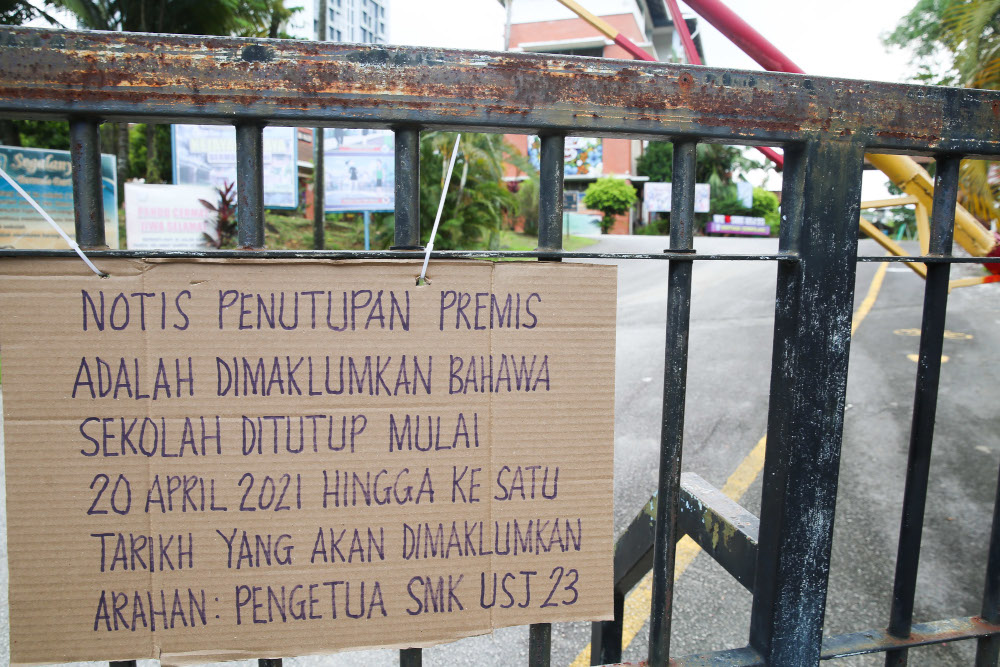 Segalanya
NOTIS PENUTUPAN PREMIS
ADALAH DIMAKLUMKAN BAHAWA
SEKOLAH DITUTUP MULAI
20 APRIL 2021 HINGGA KE SATU
TARIKH YANG AKAN DIMAKLUMKAN
ARAHAN: PENGETUA SMK USJ 23